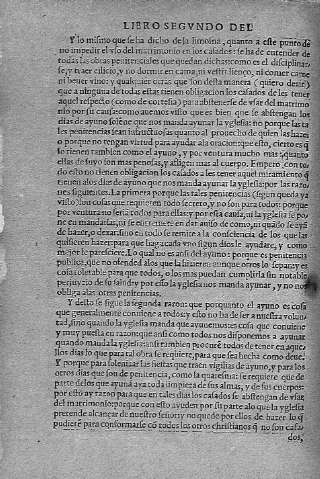 LIBRO SEGVNDO DEL
Y lo mismo que se ha dicho de la limosna, quanto a este punto de
no impedir el vso del matrimonio en los casados: se ha de entender de
todas las obras penitenciales que quedan dichas: como es el disciplinar
se, y traer cilicio, y no dormir en cama, ni vestir lienço, ni comer carne
ni beuer vino: y qualquier otras que son desta manera (quiero dezir)
que a ninguna de todas estas tienen obligacion los casados de les tener
aquel respecto (como de cortesia) para abstenerse de vsar del matrimo
nio por su causa: como auemos visto que es bien que se abstengan los
dias de ayuno solene que nos manda ayunar la yglesia: no porque las ta
les penitencias sean infructuosas quanto al prouecho de quien las haze:
o porque no tengan virtud para ayudar ala oracion: que esto, cierto es q̃
lo tienen tambien como el ayuno, y por ventura mucho mas: quanto
ellas de suyo son mas penosas, y afligen mas al cuerpo. Empero con to
do esto no tienen obligacion los casados a les tener aquel miramiento q̃
tienen alos dias de ayuno que nos manda ayunar la yglesia: por las razo
nes siguientes. La primera porque las tales penitencias (segun queda ya
visto) son cosas que requieren todo secreto, y no son para todos: porque
por ventura no seria todo para ellas: y por esta causa, ni la yglesia se po
ne en mandarlas, ni se entremete en dar auiso de como, ni quãdo se ayã
de hazer, o dexar, ni en todo se remite a la consciencia de los que las
quisieren hazer: para que haga cada vno segun dios le ayudare, y como
mejor le pareciere. Lo qual no es assi del ayuno: porque es penitencia
publica, que no ofende d alos que la hazen:
cosa tolerable para que todos, o los mas puedan cumplirla sin notable
perjuyzio de su salud: y por esso la yglesia nos manda ayunar, y no nos
obliga alas otras penitencias.
Y desto se sigue la segunda razon: que porquanto el ayuno es cosa
que generalmente conuiene a todos: y esto no ha de ser a nuestra volun
tad, sino quando la yglesia manda que ayunemos: es cosa que conuiene
y muy puesta en razon: que assi como todos nos disponemos a ayunar
quando manda la yglesia: assi tambien procurẽ todos de tener en aque
llos dias lo que para tal obra se requiere, para que sea hecha como deue.
Y porque para solenizar las fiestas que traen vigilias de ayuno, y para los
otros dias que son de penitencia, como la quaresma: se requiere que de
parte delos que ayunã aya toda limpieza de sus almas, y de sus cuerpos:
por esto ay razon para que en tales dias los casados se abstengan de vsar
del matrimonio: porque con esto ayuden por su parte alo que la yglesia
pretende alcançar de nuestro señor: y no quede por ellos de hazer lo q̃
pudierẽ para conformarse cõ todos los otros christianos q̃ no son casa-
dos,